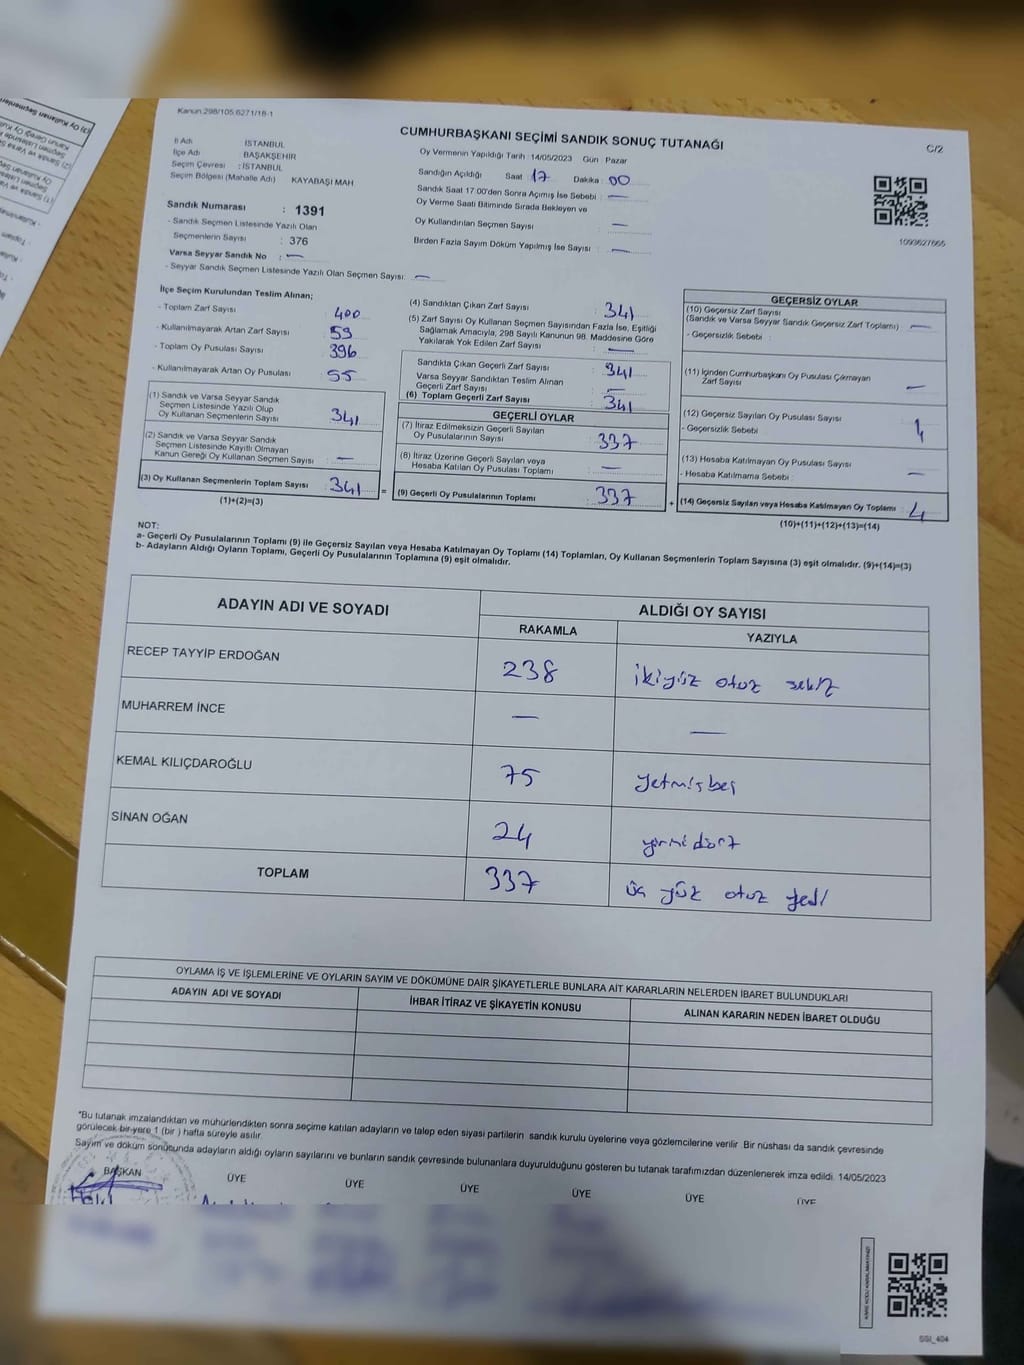 Kanun.298/105,6271/18-1
CUMHURBAŞKANI SEÇİMİ SANDIK SONUÇ TUTANAĞI
C/2
İl Adı İSTANBUL
İlçe Adı BAŞAKŞEHİR
Seçim Çevresi : İSTANBUL
Seçim Bölgesi (Mahalle Adı) KAYABAŞI MAH
Sandık Numarası : 1391
- Sandık Seçmen Listesinde Yazılı Olan
Seçmenlerin Sayısı : 376
Varsa Seyyar Sandık No : —
- Seyyar Sandık Seçmen Listesinde Yazılı Olan Seçmen Sayısı: —
Oy Vermenin Yapıldığı Tarih : 14/05/2023 Gün : Pazar
Sandığın Açıldığı Saat : 17 Dakika : 00
Sandık Saat 17:00'den Sonra Açımış İse Sebebi : —
Oy Verme Saati Bitiminde Sırada Bekleyen ve
Oy Kullandırılan Seçmen Sayısı : —
Birden Fazla Sayım Döküm Yapılmış İse Sayısı : —
1093627665
İlçe Seçim Kurulundan Teslim Alınan;
- Toplam Zarf Sayısı : 400
- Kullanılmayarak Artan Zarf Sayısı : 59
- Toplam Oy Pusulası Sayısı : 396
- Kullanılmayarak Artan Oy Pusulası : 55
(1) Sandık ve Varsa Seyyar Sandık
Seçmen Listesinde Yazılı Olup
Oy Kullanan Seçmenlerin Sayısı : 341
(2) Sandık ve Varsa Seyyar Sandık
Seçmen Listesinde Kayıtlı Olmayan
Kanun Gereği Oy Kullanan Seçmen Sayısı : —
(3) Oy Kullanan Seçmenlerin Toplam Sayısı : 341
(1)+(2)=(3)
(4) Sandıktan Çıkan Zarf Sayısı : 341
(5) Zarf Sayısı Oy Kullanan Seçmen Sayısından Fazla İse, Eşitliği
Sağlamak Amacıyla, 298 Sayılı Kanunun 98. Maddesine Göre
Yakılarak Yok Edilen Zarf Sayısı : —
Sandıkta Çıkan Geçerli Zarf Sayısı : 341
Varsa Seyyar Sandıktan Teslim Alınan
Geçerli Zarf Sayısı : —
(6) Toplam Geçerli Zarf Sayısı : 341
GEÇERLİ OYLAR
(7) İtiraz Edilmeksizin Geçerli Sayılan
Oy Pusulalarının Sayısı : 337
(8) İtiraz Üzerine Geçerli Sayılan veya
Hesaba Katılan Oy Pusulası Toplamı : —
= (9) Geçerli Oy Pusulalarının Toplamı : 337 +
GEÇERSİZ OYLAR
(10) Geçersiz Zarf Sayısı
(Sandık ve Varsa Seyyar Sandık Geçersiz Zarf Toplamı) : —
- Geçersizlik Sebebi :
(11) İçinden Cumhurbaşkanı Oy Pusulası Çıkmayan
Zarf Sayısı : —
(12) Geçersiz Sayılan Oy Pusulası Sayısı : 4
- Geçersizlik Sebebi :
(13) Hesaba Katılmayan Oy Pusulası Sayısı : —
- Hesaba Katılmama Sebebi :
(14) Geçersiz Sayılan veya Hesaba Katılmayan Oy Toplamı : 4
(10)+(11)+(12)+(13)=(14)
NOT:
a- Geçerli Oy Pusulalarının Toplamı (9) ile Geçersiz Sayılan veya Hesaba Katılmayan Oy Toplamı (14) Toplamları, Oy Kullanan Seçmenlerin Toplam Sayısına (3) eşit olmalıdır. (9)+(14)=(3)
b- Adayların Aldığı Oyların Toplamı, Geçerli Oy Pusulalarının Toplamına (9) eşit olmalıdır.
ADAYIN ADI VE SOYADI ALDIĞI OY SAYISI
RAKAMLA YAZIYLA
RECEP TAYYİP ERDOĞAN 238 ikiyüz otuz sekiz
MUHARREM İNCE — —
KEMAL KILIÇDAROĞLU 75 yetmişbeş
SİNAN OĞAN 24 yirmidört
TOPLAM 337 üç yüz otuz yedi
OYLAMA İŞ VE İŞLEMLERİNE VE OYLARIN SAYIM VE DÖKÜMÜNE DAİR ŞİKAYETLERLE BUNLARA AİT KARARLARIN NELERDEN İBARET BULUNDUKLARI
ADAYIN ADI VE SOYADI İHBAR İTİRAZ VE ŞİKAYETİN KONUSU ALINAN KARARIN NEDEN İBARET OLDUĞU
*Bu tutanak imzalandıktan ve mühürlendikten sonra seçime katılan adayların ve talep eden siyasi partilerin sandık kurulu üyelerine veya gözlemcilerine verilir Bir nüshası da sandık çevresinde
görülecek bir yere 1 (bir ) hafta süreyle asılır.
Sayım ve döküm sonucunda adayların aldığı oyların sayılarını ve bunların sandık çevresinde bulunanlara duyurulduğunu gösteren bu tutanak tarafımızdan düzenlenerek imza edildi. 14/05/2023
BAŞKAN ÜYE ÜYE ÜYE ÜYE ÜYE ÜYE
SSI_404